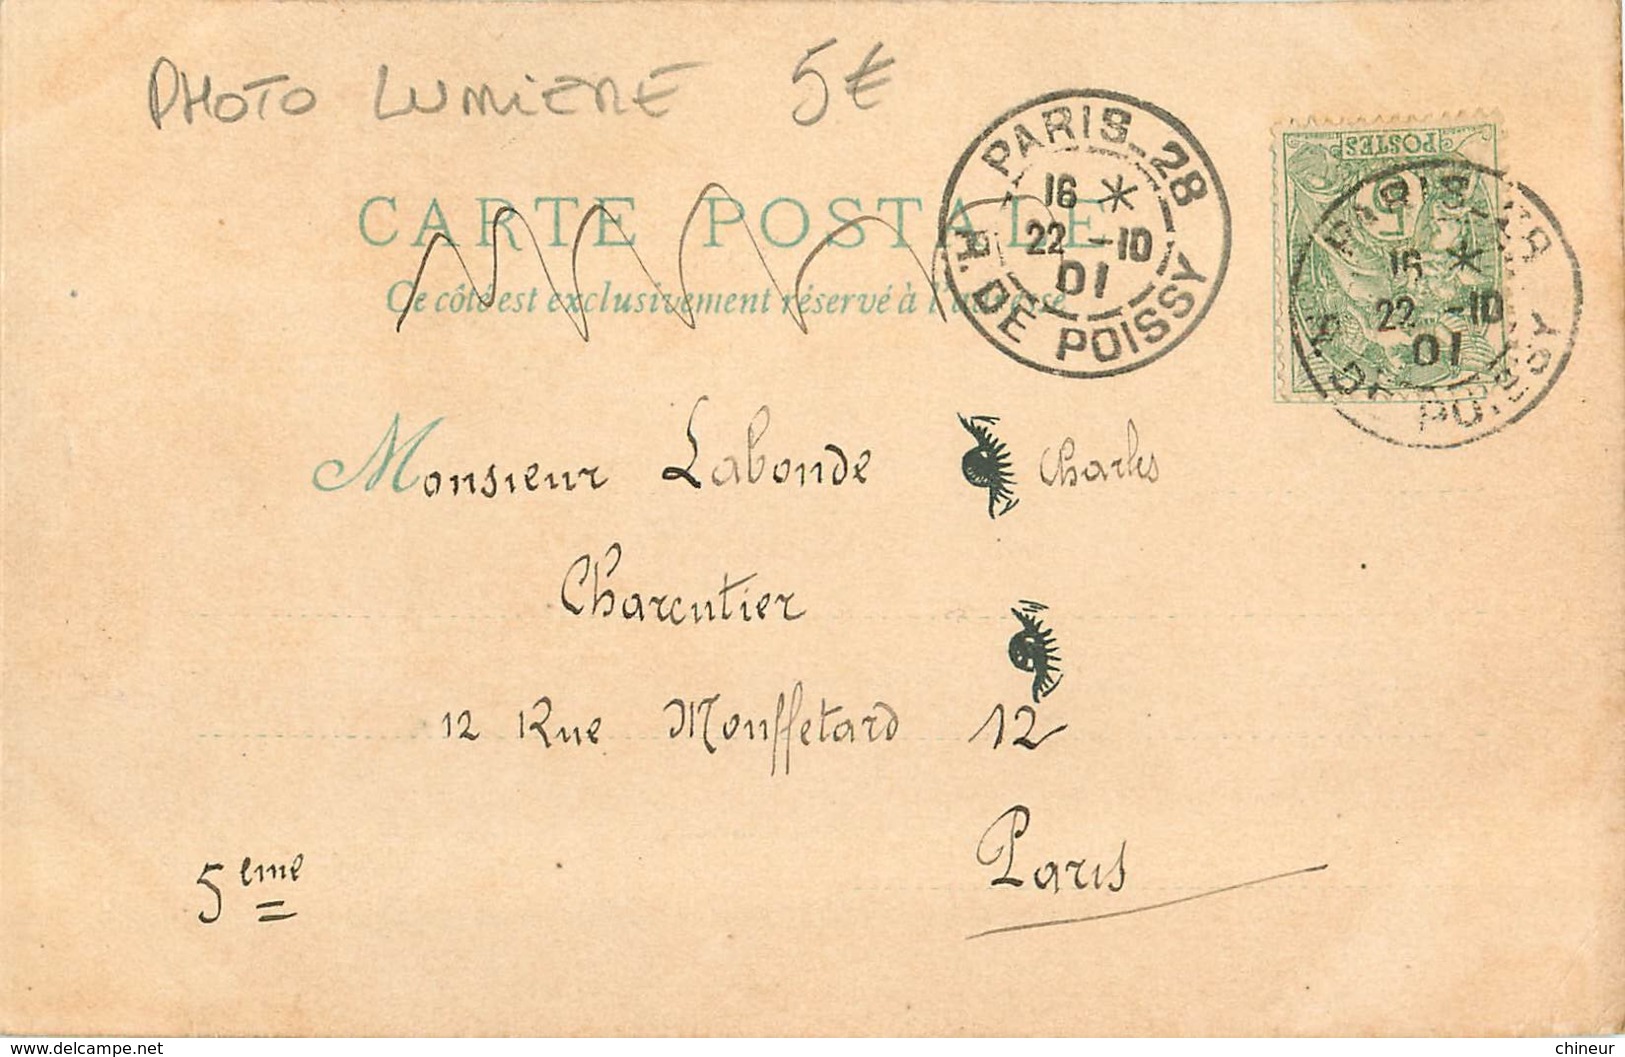 PHOTO LUMIERE 5€
CARTE POSTALE
Ce côté est exclusivement réservé à l'adresse
PARIS_28
16 *
22 -10
01
R. DE POISSY
POSTES
5
PARIS
16 *
22 -10
01
R. DE POISSY
Monsieur Labonde Charles
Charcutier
12 Rue Mouffetard 12
Paris
5eme
delcampe.net
chineur